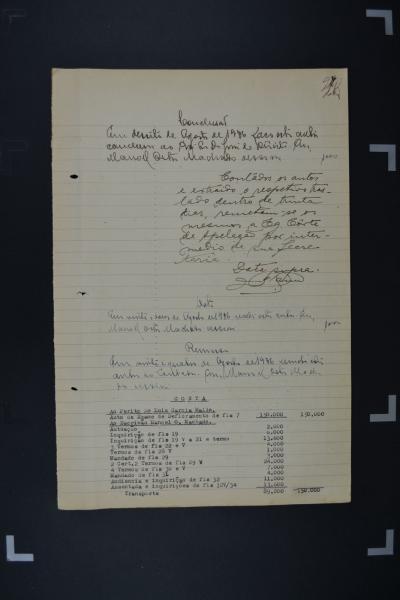 Conclusão
Em dezoito de Agosto de 1936 faço estes autos
conclusos ao Dr. Juiz de Direito. Eu,
Manoel Machado escrivão
Contados os autos
e extraido o respectivo tras-
lado dentro de trinta
dias, remetam-se os
mesmos a Eg. Côrte
de Apelação por inter-
medio de sua Secre-
taria.
Data supra.
Data
Em vinte e de Agosto de 1936 recebi estes autos. Eu,
Manoel Machado escrivão
Remessa
Em vinte e quatro de Agosto de 1936 remeto estes
autos ao Contador. Eu, Manoel Macha-
do escrivão
C O N T A
Ao Perito Dr Luis Garcia
Auto de Exame de Defloramento de fls 7 150.000 150.000
Ao Escrivão Manoel O. Machado.
Autuação 2.000
Inquirição de fls 19 6.000
Inquirição de fls 19 V a 21 e termo 13.600
Termos de fls 22 e V 4.000
Termos de fls 28 V 1.000
Mandado de fls 29 3.000
2 Cert, 2 Termos de fls 29 V 24.000
4 Termos de fls 30 e V 7.000
Mandado de fls 31 4.000
Audiencia e Inquirição de fls 32 11.000
Assentada e Inquirições de fls 32V/34 13.600
Transporte 89.000 150.000